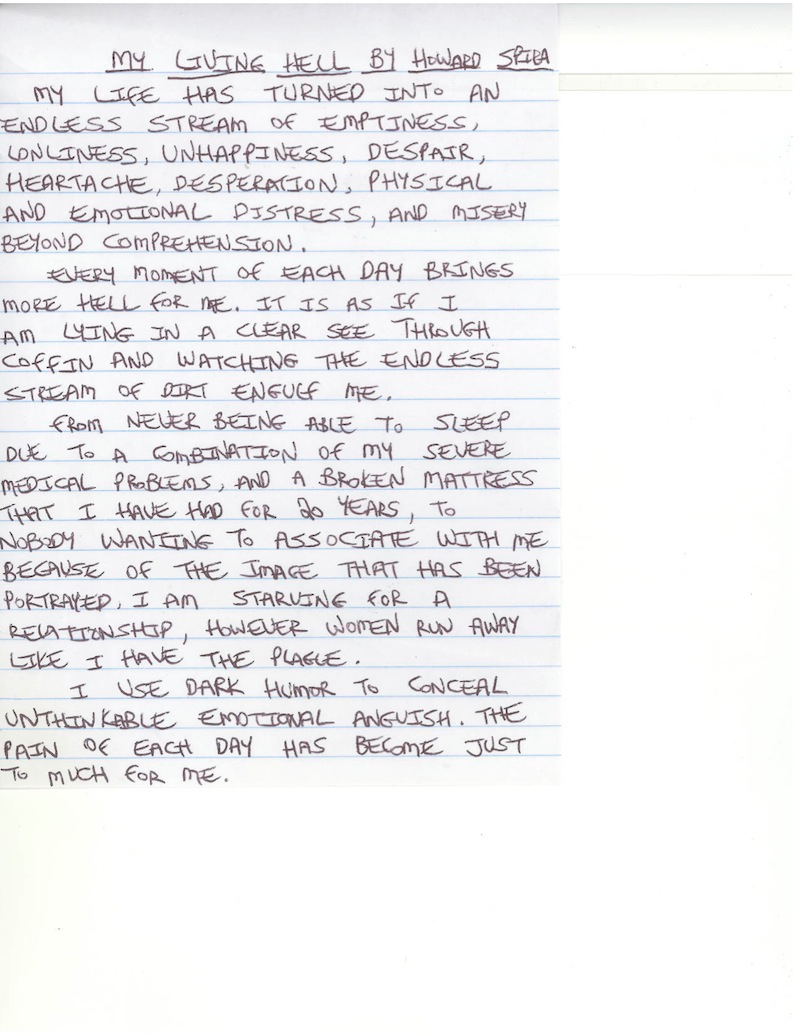 MY LIVING HELL BY HOWARD SPIRA
MY LIFE HAS TURNED INTO AN
ENDLESS STREAM OF EMPTINESS,
LONLINESS, UNHAPPINESS, DESPAIR,
HEARTACHE, DESPERATION, PHYSICAL
AND EMOTIONAL DISTRESS, AND MISERY
BEYOND COMPREHENSION.
EVERY MOMENT OF EACH DAY BRINGS
MORE HELL FOR ME. IT IS AS IF I
AM LYING IN A CLEAR SEE THROUGH
COFFIN AND WATCHING THE ENDLESS
STREAM OF DIRT ENGULF ME.
FROM NEVER BEING ABLE TO SLEEP
DUE TO A COMBINATION OF MY SEVERE
MEDICAL PROBLEMS, AND A BROKEN MATTRESS
THAT I HAVE HAD FOR 20 YEARS, TO
NOBODY WANTING TO ASSOCIATE WITH ME
BECAUSE OF THE IMAGE THAT HAS BEEN
PORTRAYED. I AM STARVING FOR A
RELATIONSHIP, HOWEVER WOMEN RUN AWAY
LIKE I HAVE THE PLAGUE.
I USE DARK HUMOR TO CONCEAL
UNTHINKABLE EMOTIONAL ANGUISH. THE
PAIN OF EACH DAY HAS BECOME JUST
TO MUCH FOR ME.